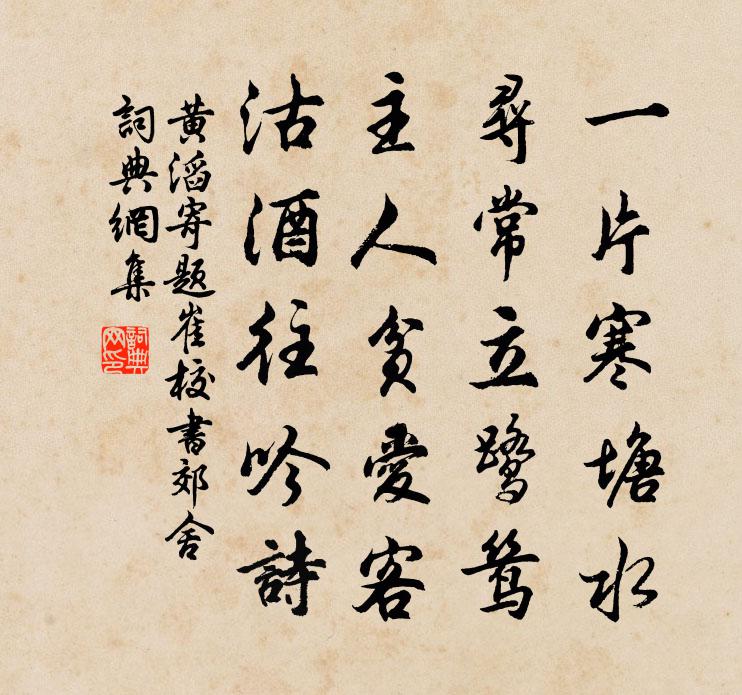 一片寒塘水
尋常立鷺鷥
主人貧愛客
沽酒往吟詩
黄滔寄題崔校書郊舍
詞典網集
詞典
网印